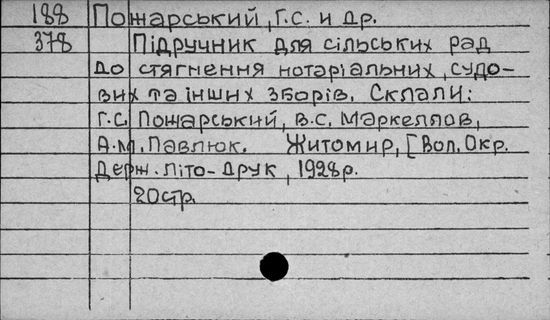 188 Пожарський, Г.С. и др.
378 Підручник для сільських рад
до стягнення нотаріальних, судо-
вих та інших зборів. Склали:
Г.С. Пожарський, В.С. Маркеллов,
А.М. Павлюк. Житомир, [Вол. Окр.
Держ. Літо-Друк, 1928р.
20стр.